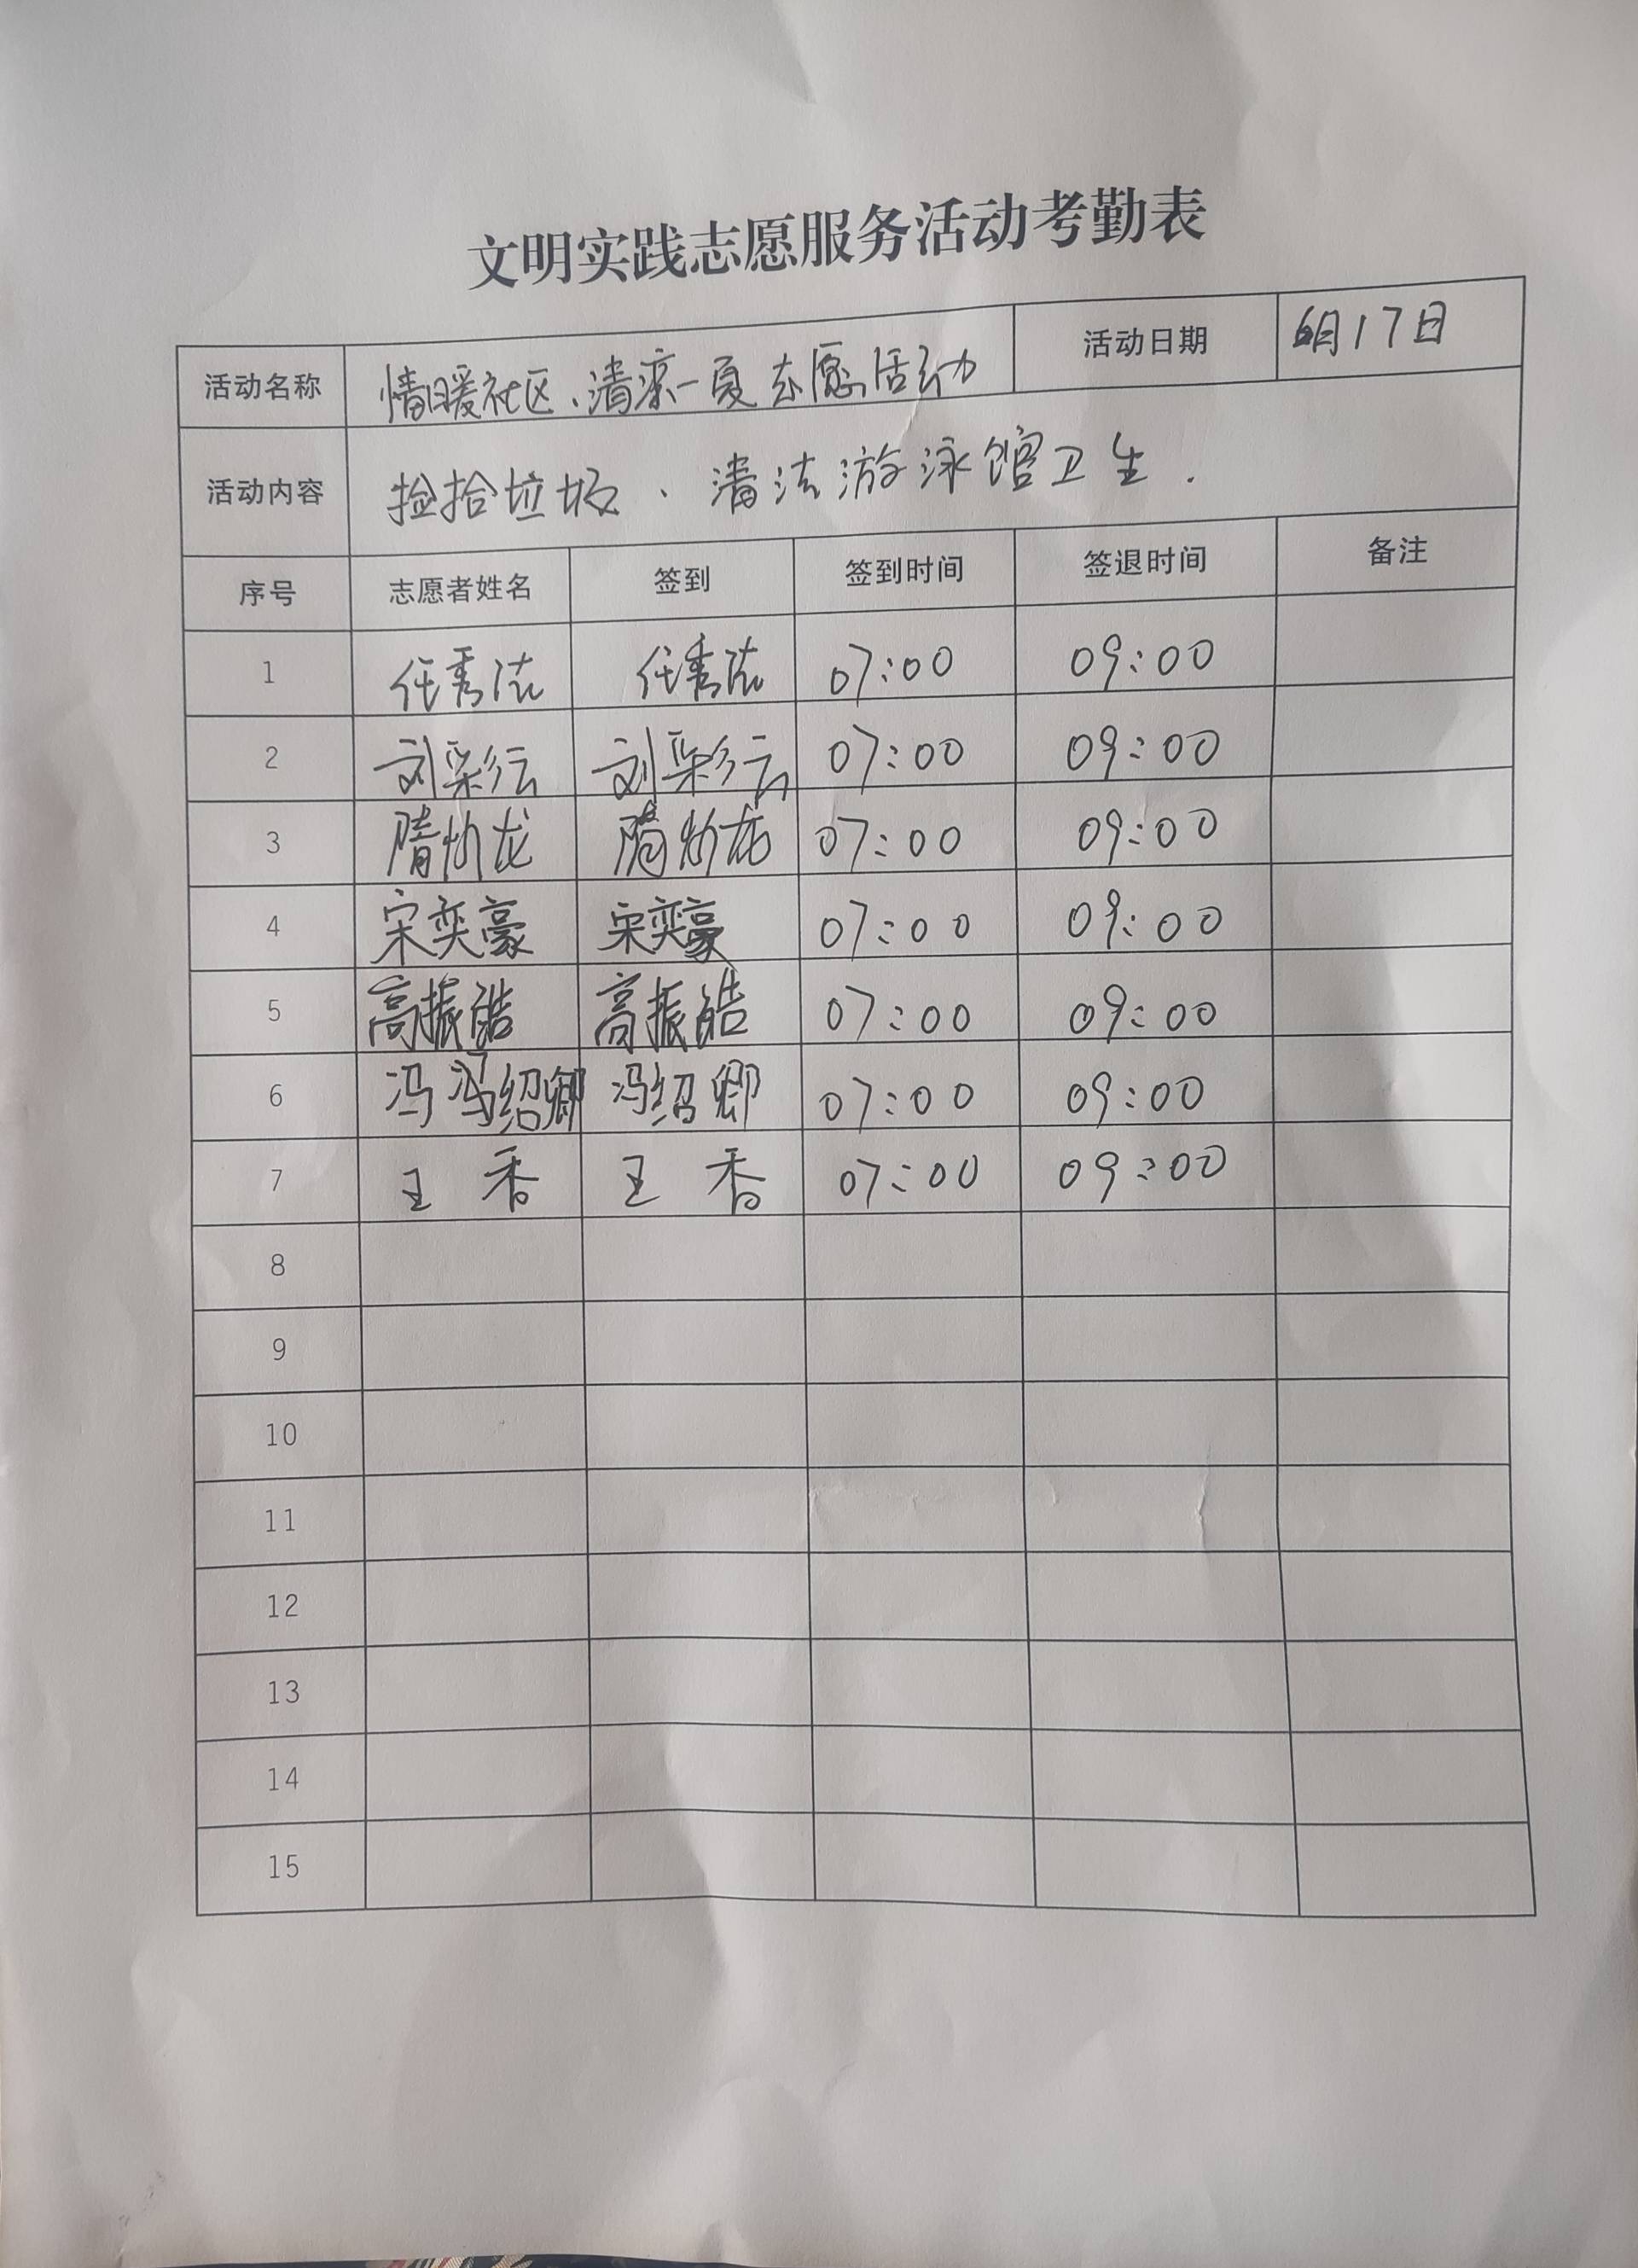 文明实践志愿服务活动考勤表
活动名称 情暖社区、清凉一夏志愿活动 活动日期 6月17日
活动内容 捡拾垃圾、清洁游泳馆卫生.
序号 志愿者姓名 签到 签到时间 签退时间 备注
1 任秀 任秀 07:00 09:00
2 刘彩云 刘彩云 07:00 09:00
3 隋 龙 隋 龙 07:00 09:00
4 宋奕豪 宋奕豪 07:00 09:00
5 高振皓 高振皓 07:00 09:00
6 冯 冯绍卿 冯绍卿 07:00 09:00
7 王 香 王 香 07:00 09:00
8
9
10
11
12
13
14
15